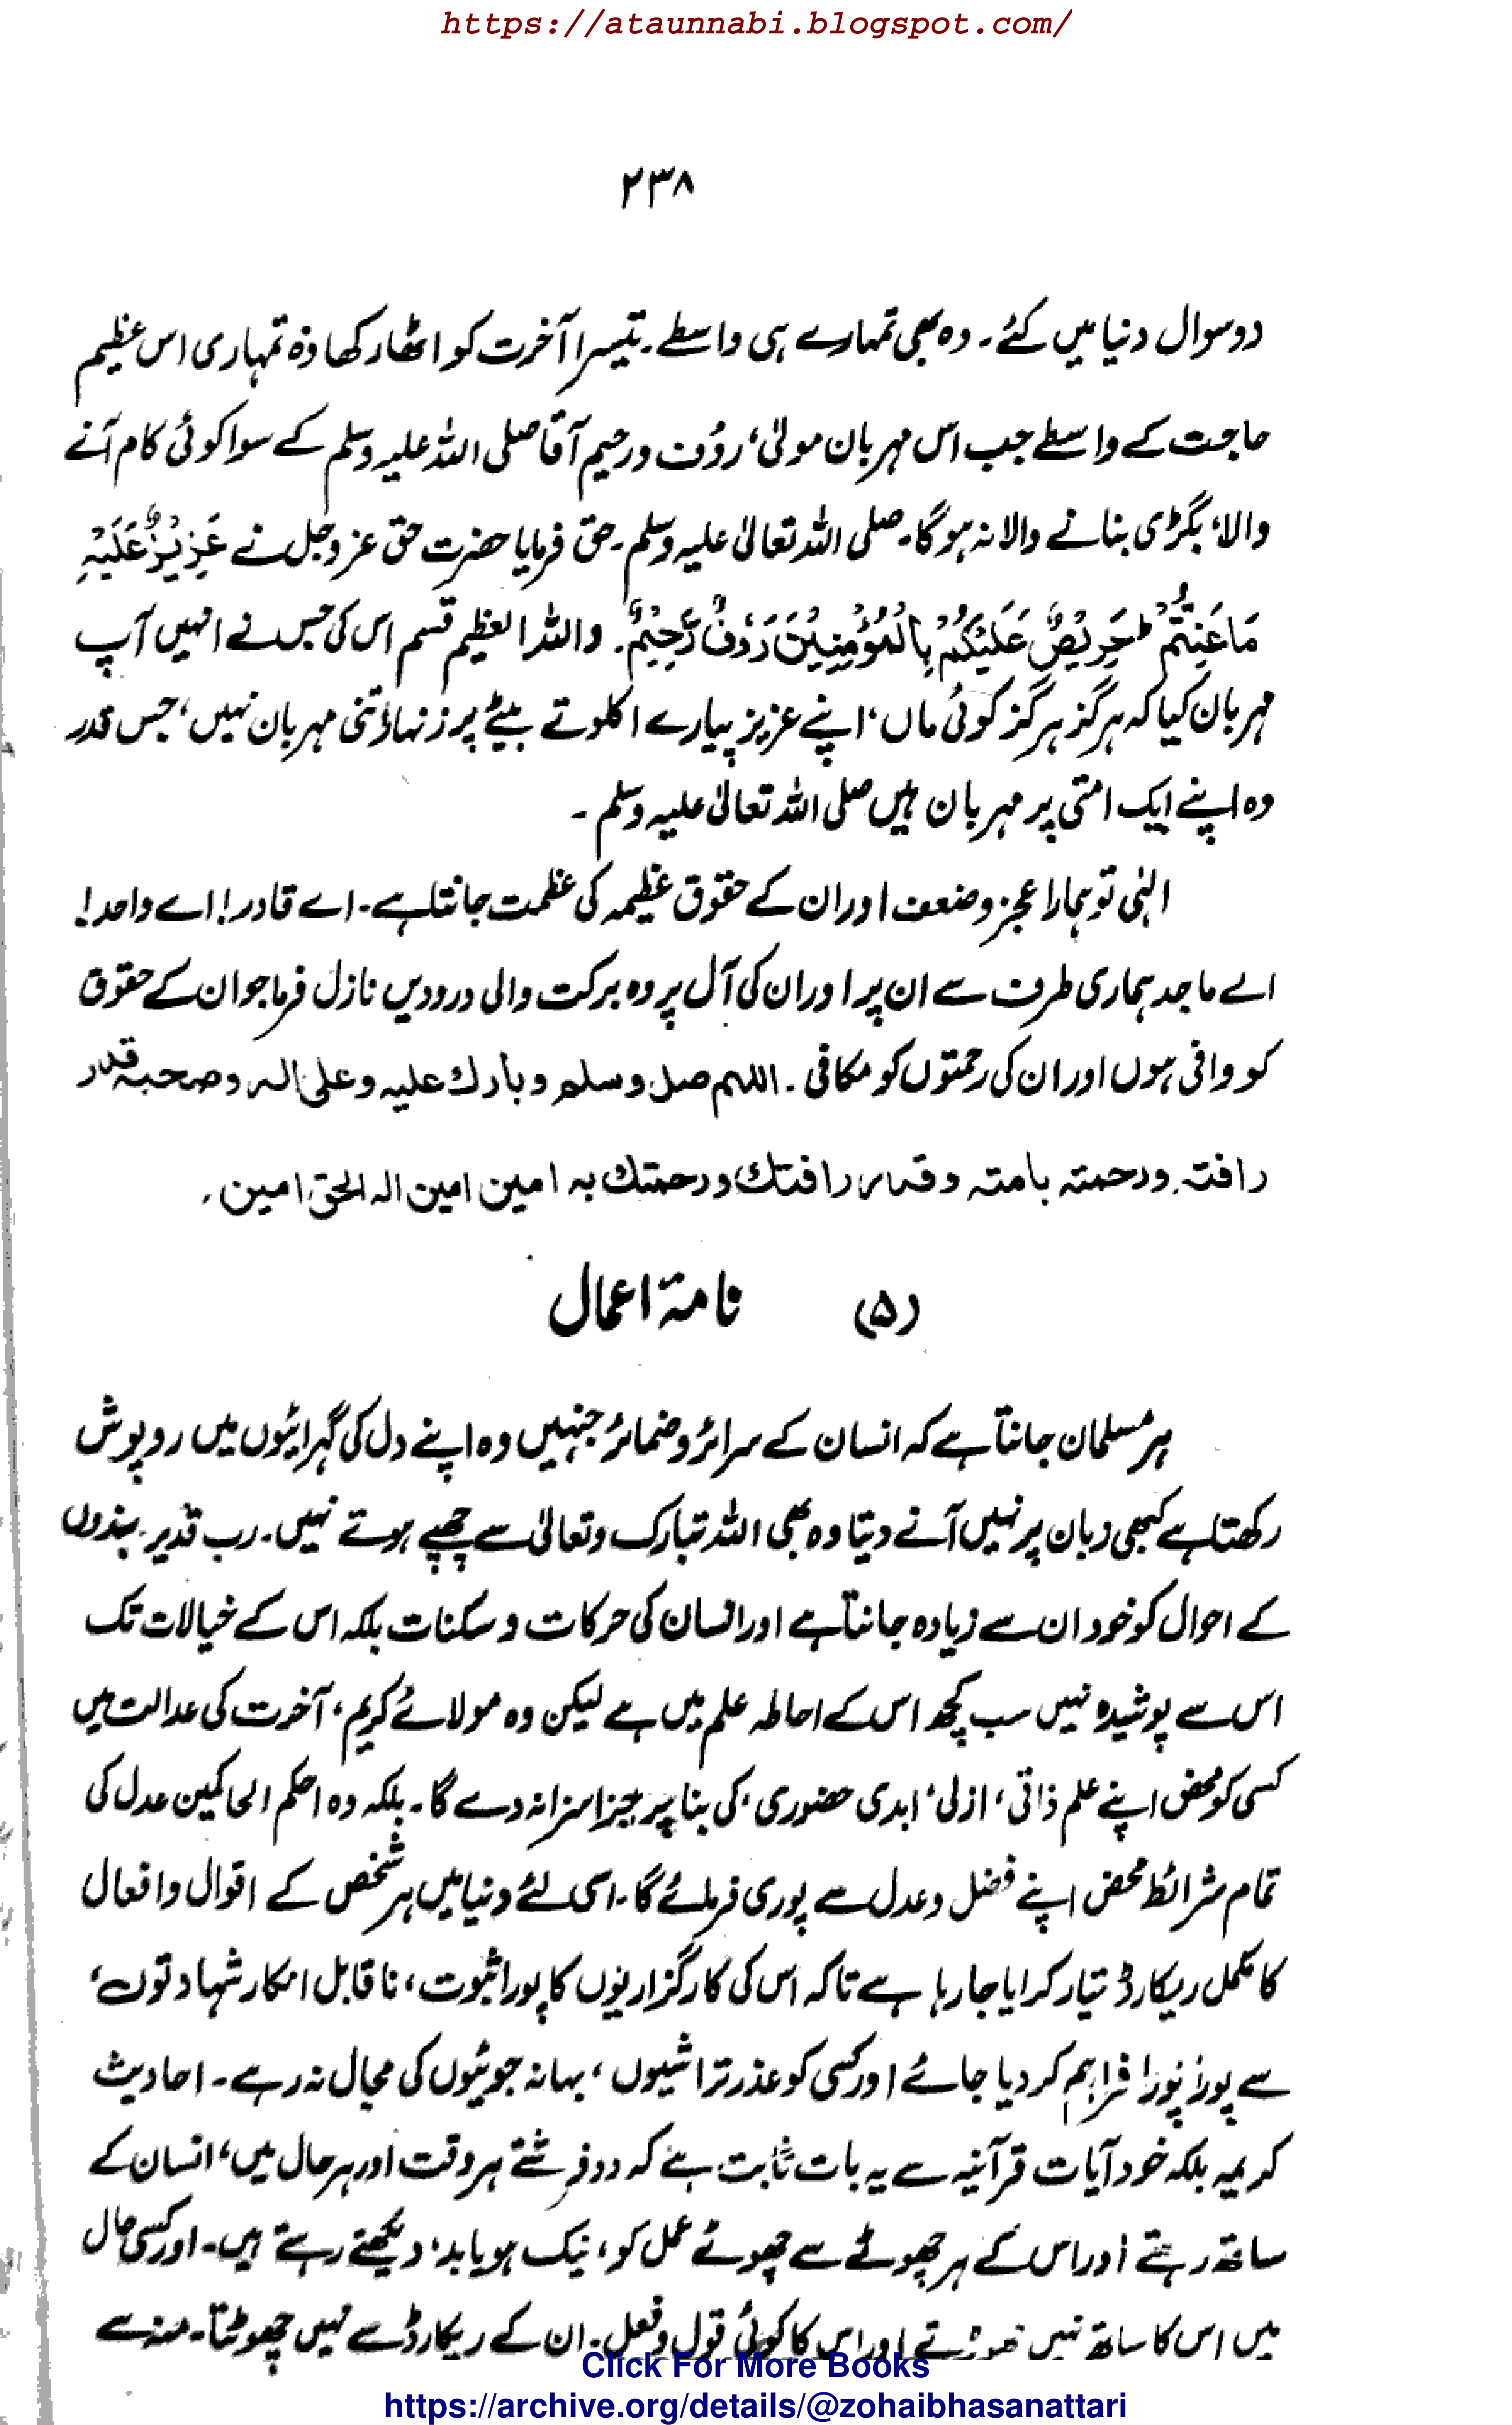 https://ataunnabi.blogspot.com/
۲۳۸
دو سوال دنیا میں کئے۔ وہ بھی تمہارے ہی واسطے۔ تیسرا آخرت کو اٹھا رکھا وہ تمہاری اس عظیم
حاجت کے واسطے جب اس مہربان مولیٰ، رؤف و رحیم آقا صلی اللہ علیہ وسلم کے سوا کوئی کام آنے
والا، بگڑی بنانے والا نہ ہوگا۔ صلی اللہ تعالیٰ علیہ وسلم۔ حق فرمایا حضرت حق عزوجل نے عَزِيْزٌ عَلَيْهِ
مَا عَنِتُّمْ حَرِيْصٌ عَلَيْكُمْ بِالْمُؤْمِنِيْنَ رَءُوْفٌ رَّحِيْمٌ۔ واللہ العظیم قسم اس کی جس نے انہیں آپ
مہربان کیا کہ ہرگز ہرگز کوئی ماں، اپنے عزیز پیارے اکلوتے بیٹے پر زنہار اتنی مہربان نہیں، جس قدر
وہ اپنے ایک امتی پر مہربان ہیں صلی اللہ تعالیٰ علیہ وسلم۔
الٰہی تو ہمارا عجز و ضعف اور ان کے حقوق عظیمہ کی عظمت جانتا ہے۔ اے قادر! اے واحد!
اے ماجد ہماری طرف سے ان پر اور ان کی آل پر وہ برکت والی درودیں نازل فرما جو ان کے حقوق
کو وافی ہوں اور ان کی رحمتوں کو مکافی۔ اللہم صل وسلم وبارك علیہ وعلی الہ وصحبہ قدر
رافتہ ورحمتہ بامتہ وقدر رافتك ورحمتك بہ امین امین الہ الحق امین۔
(۵) نامۂ اعمال
ہر مسلمان جانتا ہے کہ انسان کے سرائر و ضمائر جنہیں وہ اپنے دل کی گہرائیوں میں روپوش
رکھتا ہے کبھی زبان پر نہیں آنے دیتا وہ بھی اللہ تبارک وتعالیٰ سے چھپے ہوتے نہیں۔ رب قدیر بندوں
کے احوال کو خود ان سے زیادہ جانتا ہے اور انسان کی حرکات و سکنات بلکہ اس کے خیالات تک
اس سے پوشیدہ نہیں سب کچھ اس کے احاطہ علم میں ہے لیکن وہ مولائے کریم، آخرت کی عدالت میں
کسی کو محض اپنے علم ذاتی، ازلی، ابدی حضوری، کی بنا پر جزا سزا نہ دے گا۔ بلکہ وہ احکم الحاکمین عدل کی
تمام شرائط محض اپنے فضل و عدل سے پوری فرمائے گا۔ اسی لئے دنیا میں ہر شخص کے اقوال وافعال
کا مکمل ریکارڈ تیار کرایا جا رہا ہے تاکہ اس کی کارگزاریوں کا پورا ثبوت، ناقابل انکار شہادتوں،
سے پورا پورا فراہم کر دیا جائے اور کسی کو عذر تراشیوں، بہانہ جوئیوں کی مجال نہ رہے۔ احادیث
کریمہ بلکہ خود آیات قرآنیہ سے یہ بات ثابت ہے کہ دو فرشتے ہر وقت اور ہر حال میں، انسان کے
ساتھ رہتے اور اس کے ہر چھوٹے سے چھوٹے عمل کو، نیک ہو یا بد، دیکھتے رہتے ہیں۔ اور کسی حال
میں اس کا ساتھ نہیں چھوڑتے اور اس کا کوئی قول و فعل۔ ان کے ریکارڈ سے نہیں چھوٹتا۔ منہ سے
Click For More Books
https://archive.org/details/@zohaibhasanattari